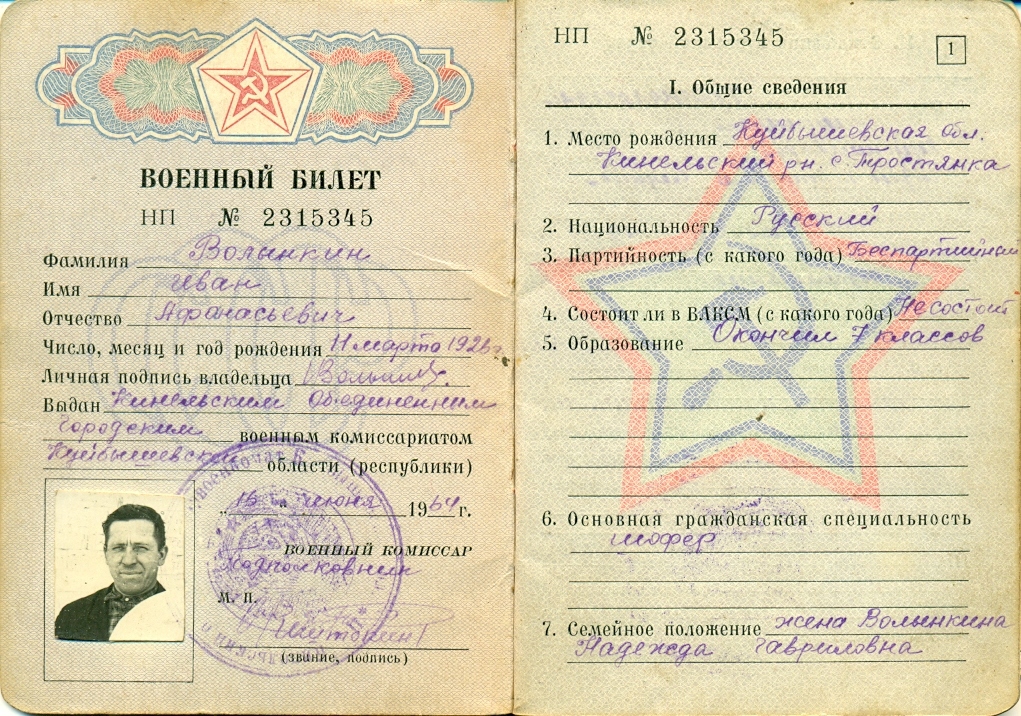 ВОЕННЫЙ БИЛЕТ
НП № 2315345
Фамилия Волынкин
Имя Иван
Отчество Афанасьевич
Число, месяц и год рождения 11 марта 1926 г.
Личная подпись владельца
Выдан Кинельским Объединенным
Городским военным комиссариатом
Куйбышевской области (республики)
„16“ июня 1964 г.
ВОЕННЫЙ КОМИССАР
Подполковник
М. П.
(звание, подпись)
НП № 2315345
1
I. Общие сведения
1. Место рождения Куйбышевская обл.
Кинельский рн. с. Тростянка
2. Национальность Русский
3. Партийность (с какого года) Беспартийный
4. Состоит ли в ВЛКСМ (с какого года) Не состоит
5. Образование Окончил 7 классов
6. Основная гражданская специальность
шофер
7. Семейное положение жена Волынкина
Надежда Гавриловна